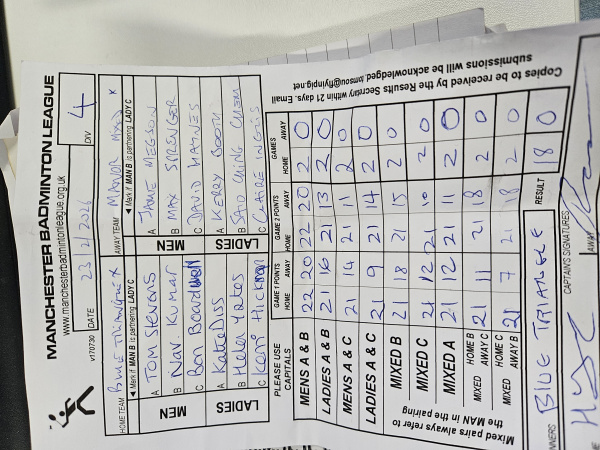 MANCHESTER BADMINTON LEAGUE
www.manchesterbadmintonleague.org.uk
v170730 DATE 23/2/2026 DIV 4
HOME TEAM BLUE TRIANGLE X AWAY TEAM MANOR X
◄ Mark if MAN B is partnering LADY C ◄ Mark if MAN B is partnering LADY C
MEN A TOM STEVENS MEN A JAMIE MEGSON
B Nav. KUMAR B MAX SPRENGER
C Ben Boardwell C DAVID HAINES
LADIES A Katie Diss LADIES A KERRY BOOTH
B Helen Yates B SAO CHING CHEM
C C CLAIRE INGLIS
PLEASE USE CAPITALS GAME 1 POINTS GAME 2 POINTS GAMES
HOME AWAY HOME AWAY HOME AWAY
MENS A & B 22 20 22 20 2 0
LADIES A & B 21 16 21 13 2 0
MENS A & C 21 14 21 11 2 0
LADIES A & C 21 9 21 14 2 0
MIXED B 21 18 21 15 2 0
MIXED C 21 12 21 10 2 0
MIXED A 21 12 21 11 2 0
MIXED HOME B AWAY C 21 11 21 18 2 0
MIXED HOME C AWAY B 21 7 21 18 2 0
Mixed pairs always refer to the MAN in the pairing
RESULT 18 0
WINNERS BLUE TRIANGLE
CAPTAIN'S SIGNATURES
AWAY
Copies to be received by the Results Secretary within 21 days. Email
submissions will be acknowledged. tomsou@flyinpig.net